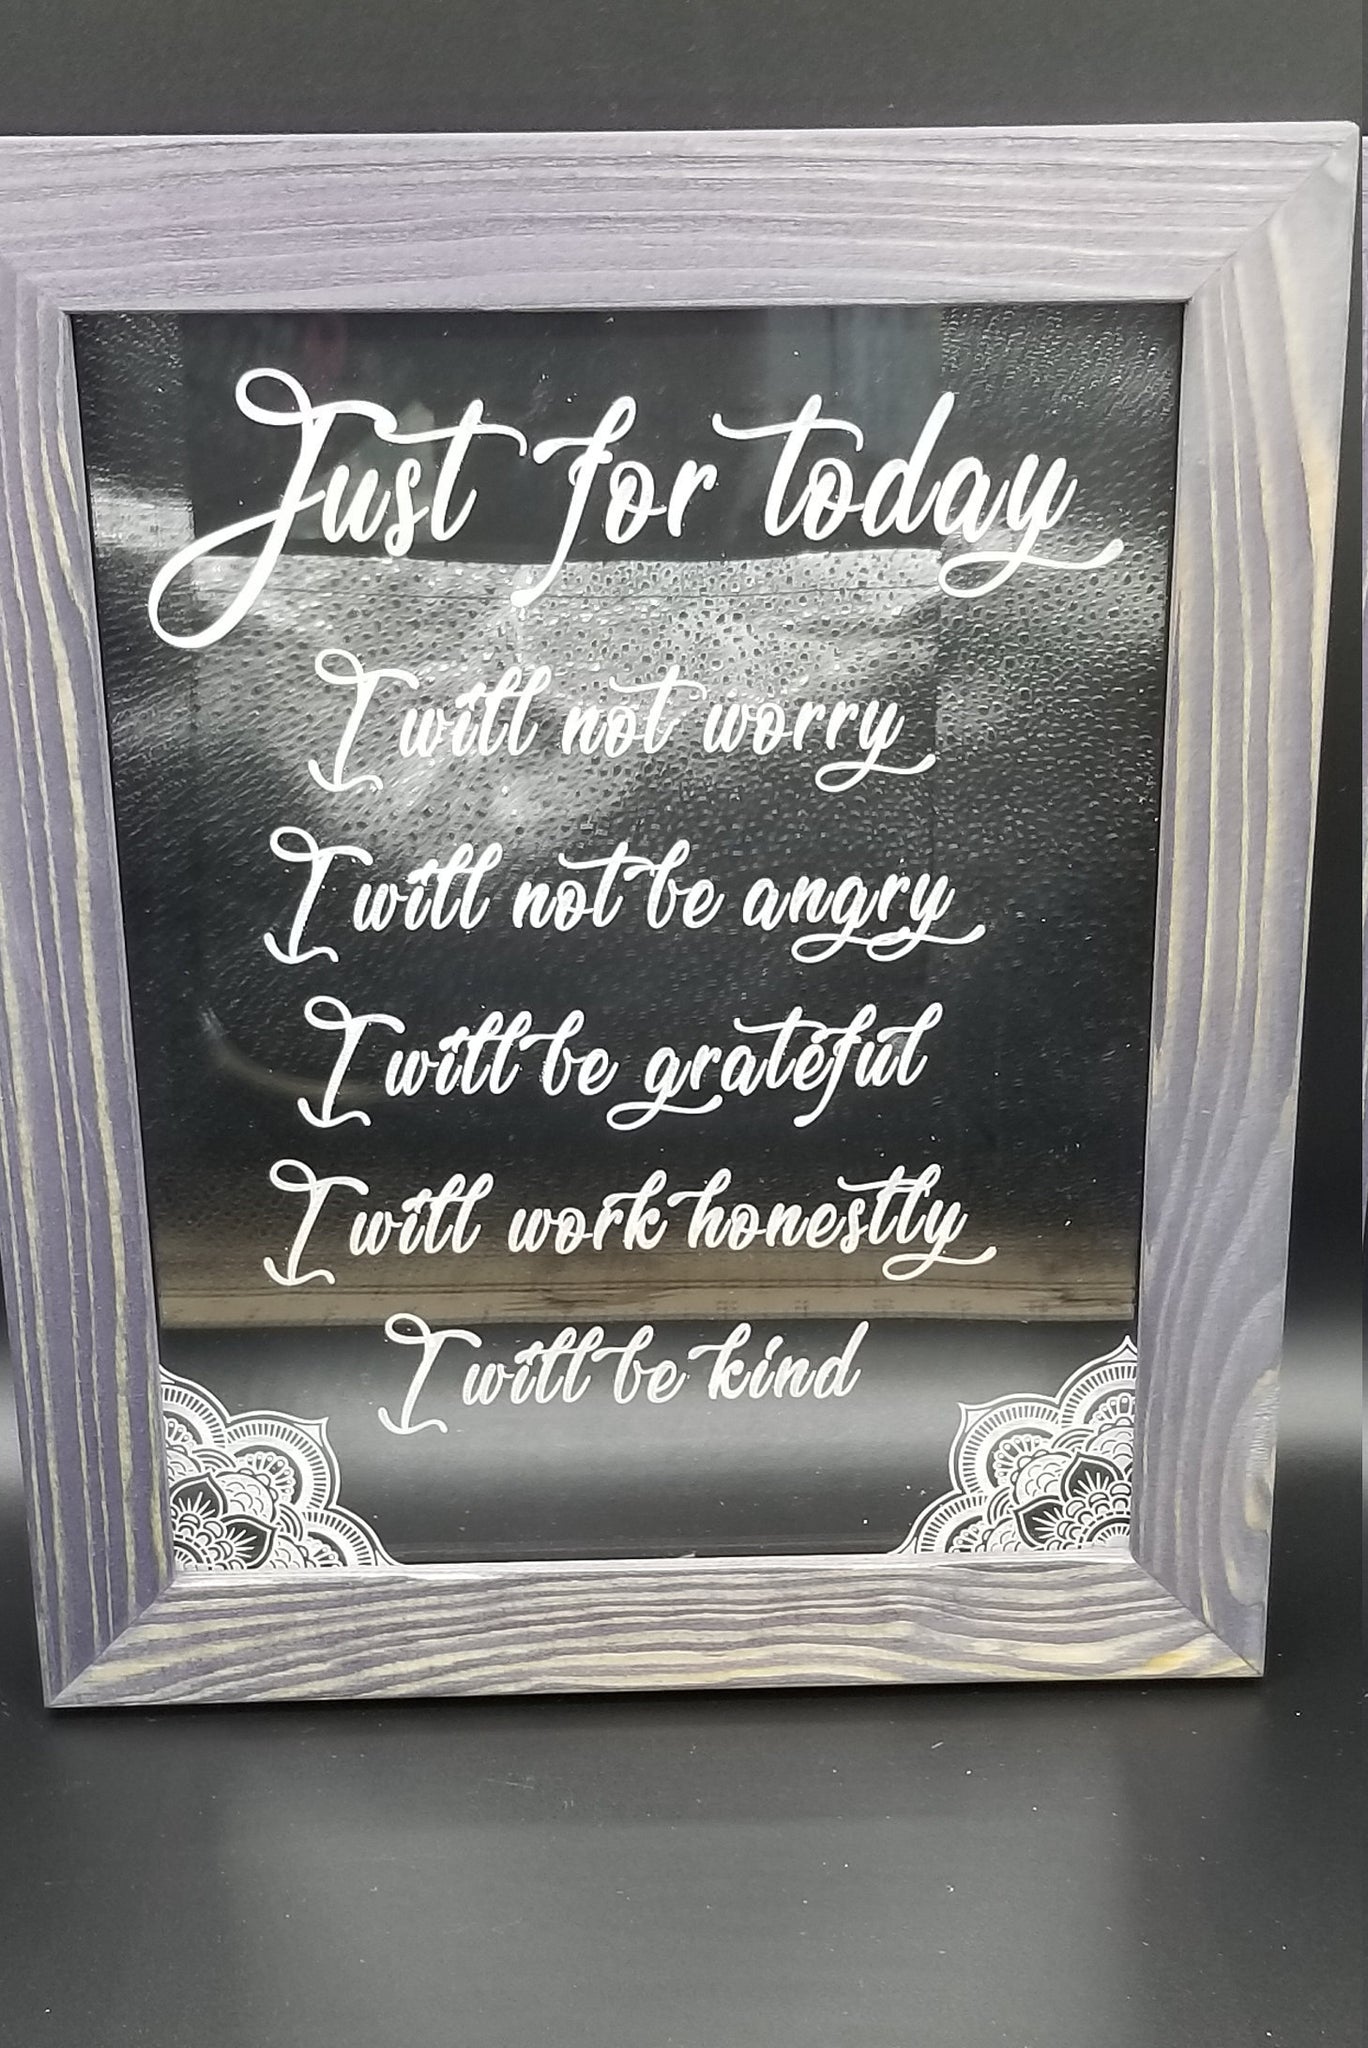 Just for today
I will not worry
I will not be angry
I will be grateful
I will work honestly
I will be kind